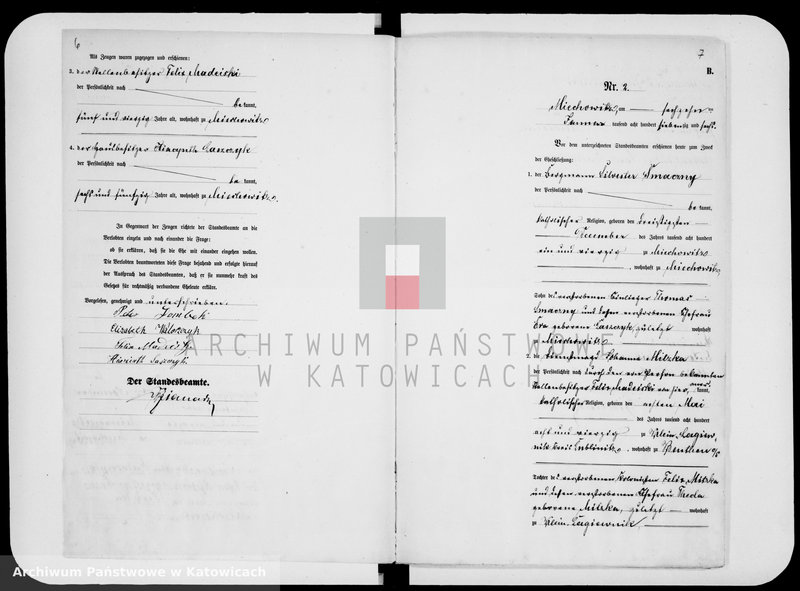 6
Als Zeugen waren zugezogen und erschienen:
3. der Stellenbesitzer Felix Madeiski
der Persönlichkeit nach
be kannt,
fünf und vierzig Jahre alt, wohnhaft zu Miechowitz
4. der Hausbesitzer Hiacynth Gaszczyk
der Persönlichkeit nach
be kannt,
sechs und fünfzig Jahre alt, wohnhaft zu Miechowitz.
In Gegenwart der Zeugen richtete der Standesbeamte an die
Verlobten einzeln und nach einander die Frage:
ob sie erklären, daß sie die Ehe mit einander eingehen wollen.
Die Verlobten beantworteten diese Frage bejahend und erfolgte hierauf
der Ausspruch des Standesbeamten, daß er sie nunmehr kraft des
Gesetzes für rechtmäßig verbundene Eheleute erkläre.
Vorgelesen, genehmigt und unterschrieben.
Peter
Elisabeth
Felix
Der Standesbeamte.
7
B.
Nr. 2.
Miechowitz, am sechzehn
Januar tausend acht hundert siebenzig und sechs.
Vor dem unterzeichneten Standesbeamten erschienen heute zum Zweck
der Eheschließung:
1. der Bergmann Silvester Smaczny
der Persönlichkeit nach
be kannt,
katholischer Religion, geboren den dreißigsten
Dezember des Jahres tausend acht hundert
ein und vierzig zu Miechowitz
, wohnhaft zu Miechowitz
Sohn des verstorbenen Einlieger Thomas
Smaczny und dessen verstorbenen Ehefrau
Eva geborene Gaszczyk, zuletzt wohnhaft
zu Miechowitz.
2. die Dienstmagd Johanna Mitzka
der Persönlichkeit nach durch den von Person bekannten
Stellenbesitzer Felix Madeiski von hier, kannt,
katholischer Religion, geboren den achten Mai
des Jahres tausend acht hundert
acht und vierzig zu Klein Lagiew-
nik Kreis Lublinitz, wohnhaft zu Beuthen O/S
Tochter des verstorbenen Kolonisten Felix Mitzka
und dessen verstorbenen Ehefrau
geborene Mitzka, zuletzt wohnhaft
zu Klein Lagiewnik
ARCHIWUM PAŃSTWOWE
W KATOWICACH
Archiwum Państwowe w Katowicach